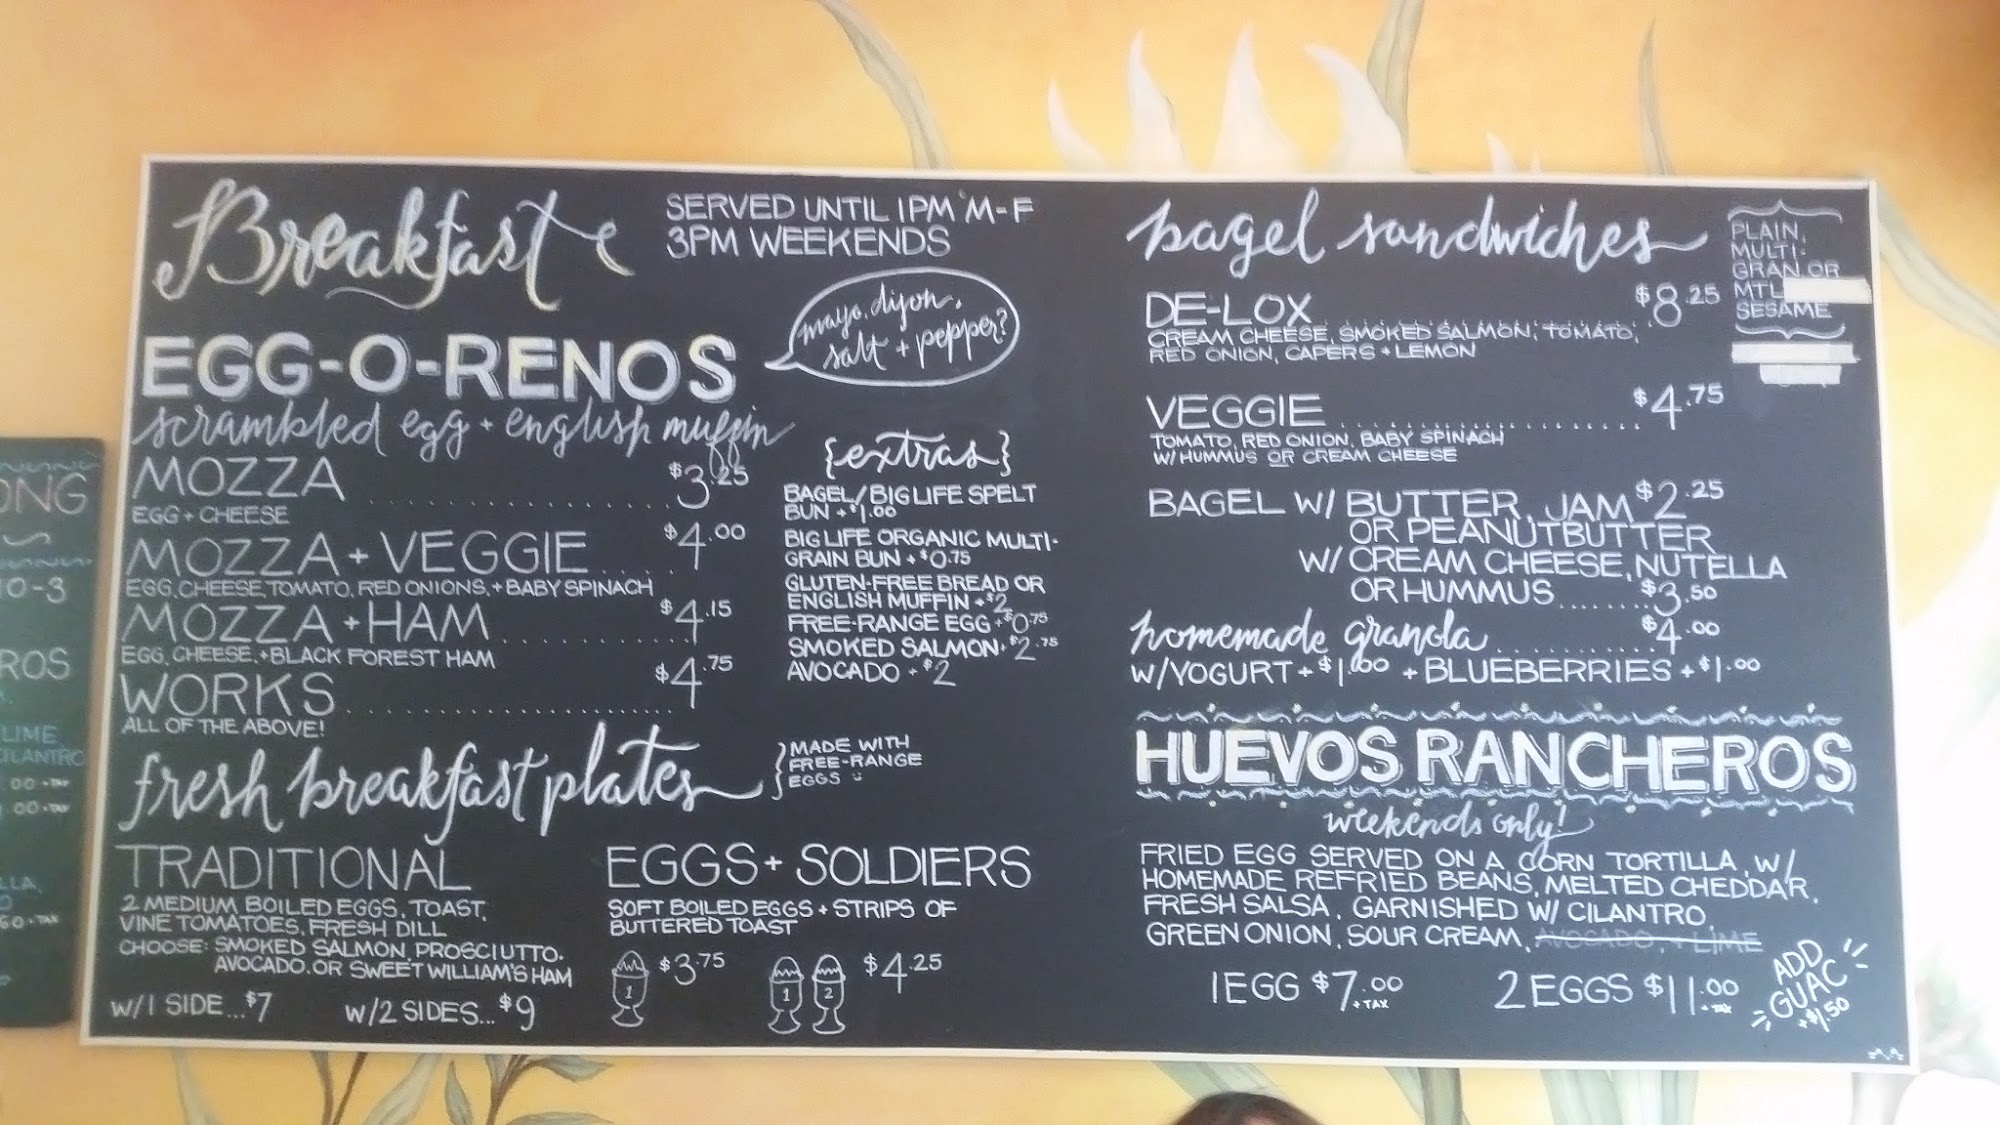 Breakfast
SERVED UNTIL 1PM M-F
3PM WEEKENDS
EGG-O-RENOS
mayo, dijon,
salt + pepper?
scrambled egg + english muffin
MOZZA $3.25
EGG + CHEESE
MOZZA + VEGGIE $4.00
EGG, CHEESE, TOMATO, RED ONIONS, + BABY SPINACH
MOZZA + HAM $4.15
EGG, CHEESE, + BLACK FOREST HAM
WORKS $4.75
ALL OF THE ABOVE!
{extras}
BAGEL/BIGLIFE SPELT
BUN + $1.00
BIG LIFE ORGANIC MULTI-
GRAIN BUN + $0.75
GLUTEN-FREE BREAD OR
ENGLISH MUFFIN + $2
FREE-RANGE EGG + $0.75
SMOKED SALMON + $2.75
AVOCADO + $2
fresh breakfast plates
MADE WITH
FREE-RANGE
EGGS
TRADITIONAL
2 MEDIUM BOILED EGGS, TOAST,
VINE TOMATOES, FRESH DILL
CHOOSE: SMOKED SALMON, PROSCIUTTO,
AVOCADO, OR SWEET WILLIAM'S HAM
W/1 SIDE...$7 W/2 SIDES...$9
EGGS + SOLDIERS
SOFT BOILED EGGS + STRIPS OF
BUTTERED TOAST
1 $3.75 1 2 $4.25
bagel sandwiches
PLAIN,
MULTI-
GRAN OR
MTL
SESAME
DE-LOX $8.25
CREAM CHEESE, SMOKED SALMON, TOMATO,
RED ONION, CAPERS + LEMON
VEGGIE $4.75
TOMATO, RED ONION, BABY SPINACH
W/ HUMMUS OR CREAM CHEESE
BAGEL W/ BUTTER, JAM $2.25
OR PEANUTBUTTER
W/ CREAM CHEESE, NUTELLA
OR HUMMUS $3.50
homemade granola $4.00
W/YOGURT + $1.00 + BLUEBERRIES + $1.00
HUEVOS RANCHEROS
weekends only!
FRIED EGG SERVED ON A CORN TORTILLA, W/
HOMEMADE REFRIED BEANS, MELTED CHEDDAR,
FRESH SALSA, GARNISHED W/ CILANTRO,
GREEN ONION, SOUR CREAM, AVOCADO, + LIME
1 EGG $7.00 + TAX 2 EGGS $11.00 + TAX
ADD
GUAC
+$1.50
ONG
10-3
ROS
LIME
CILANTRO
00 + TAX
00 + TAX
LLA,
50 + TAX